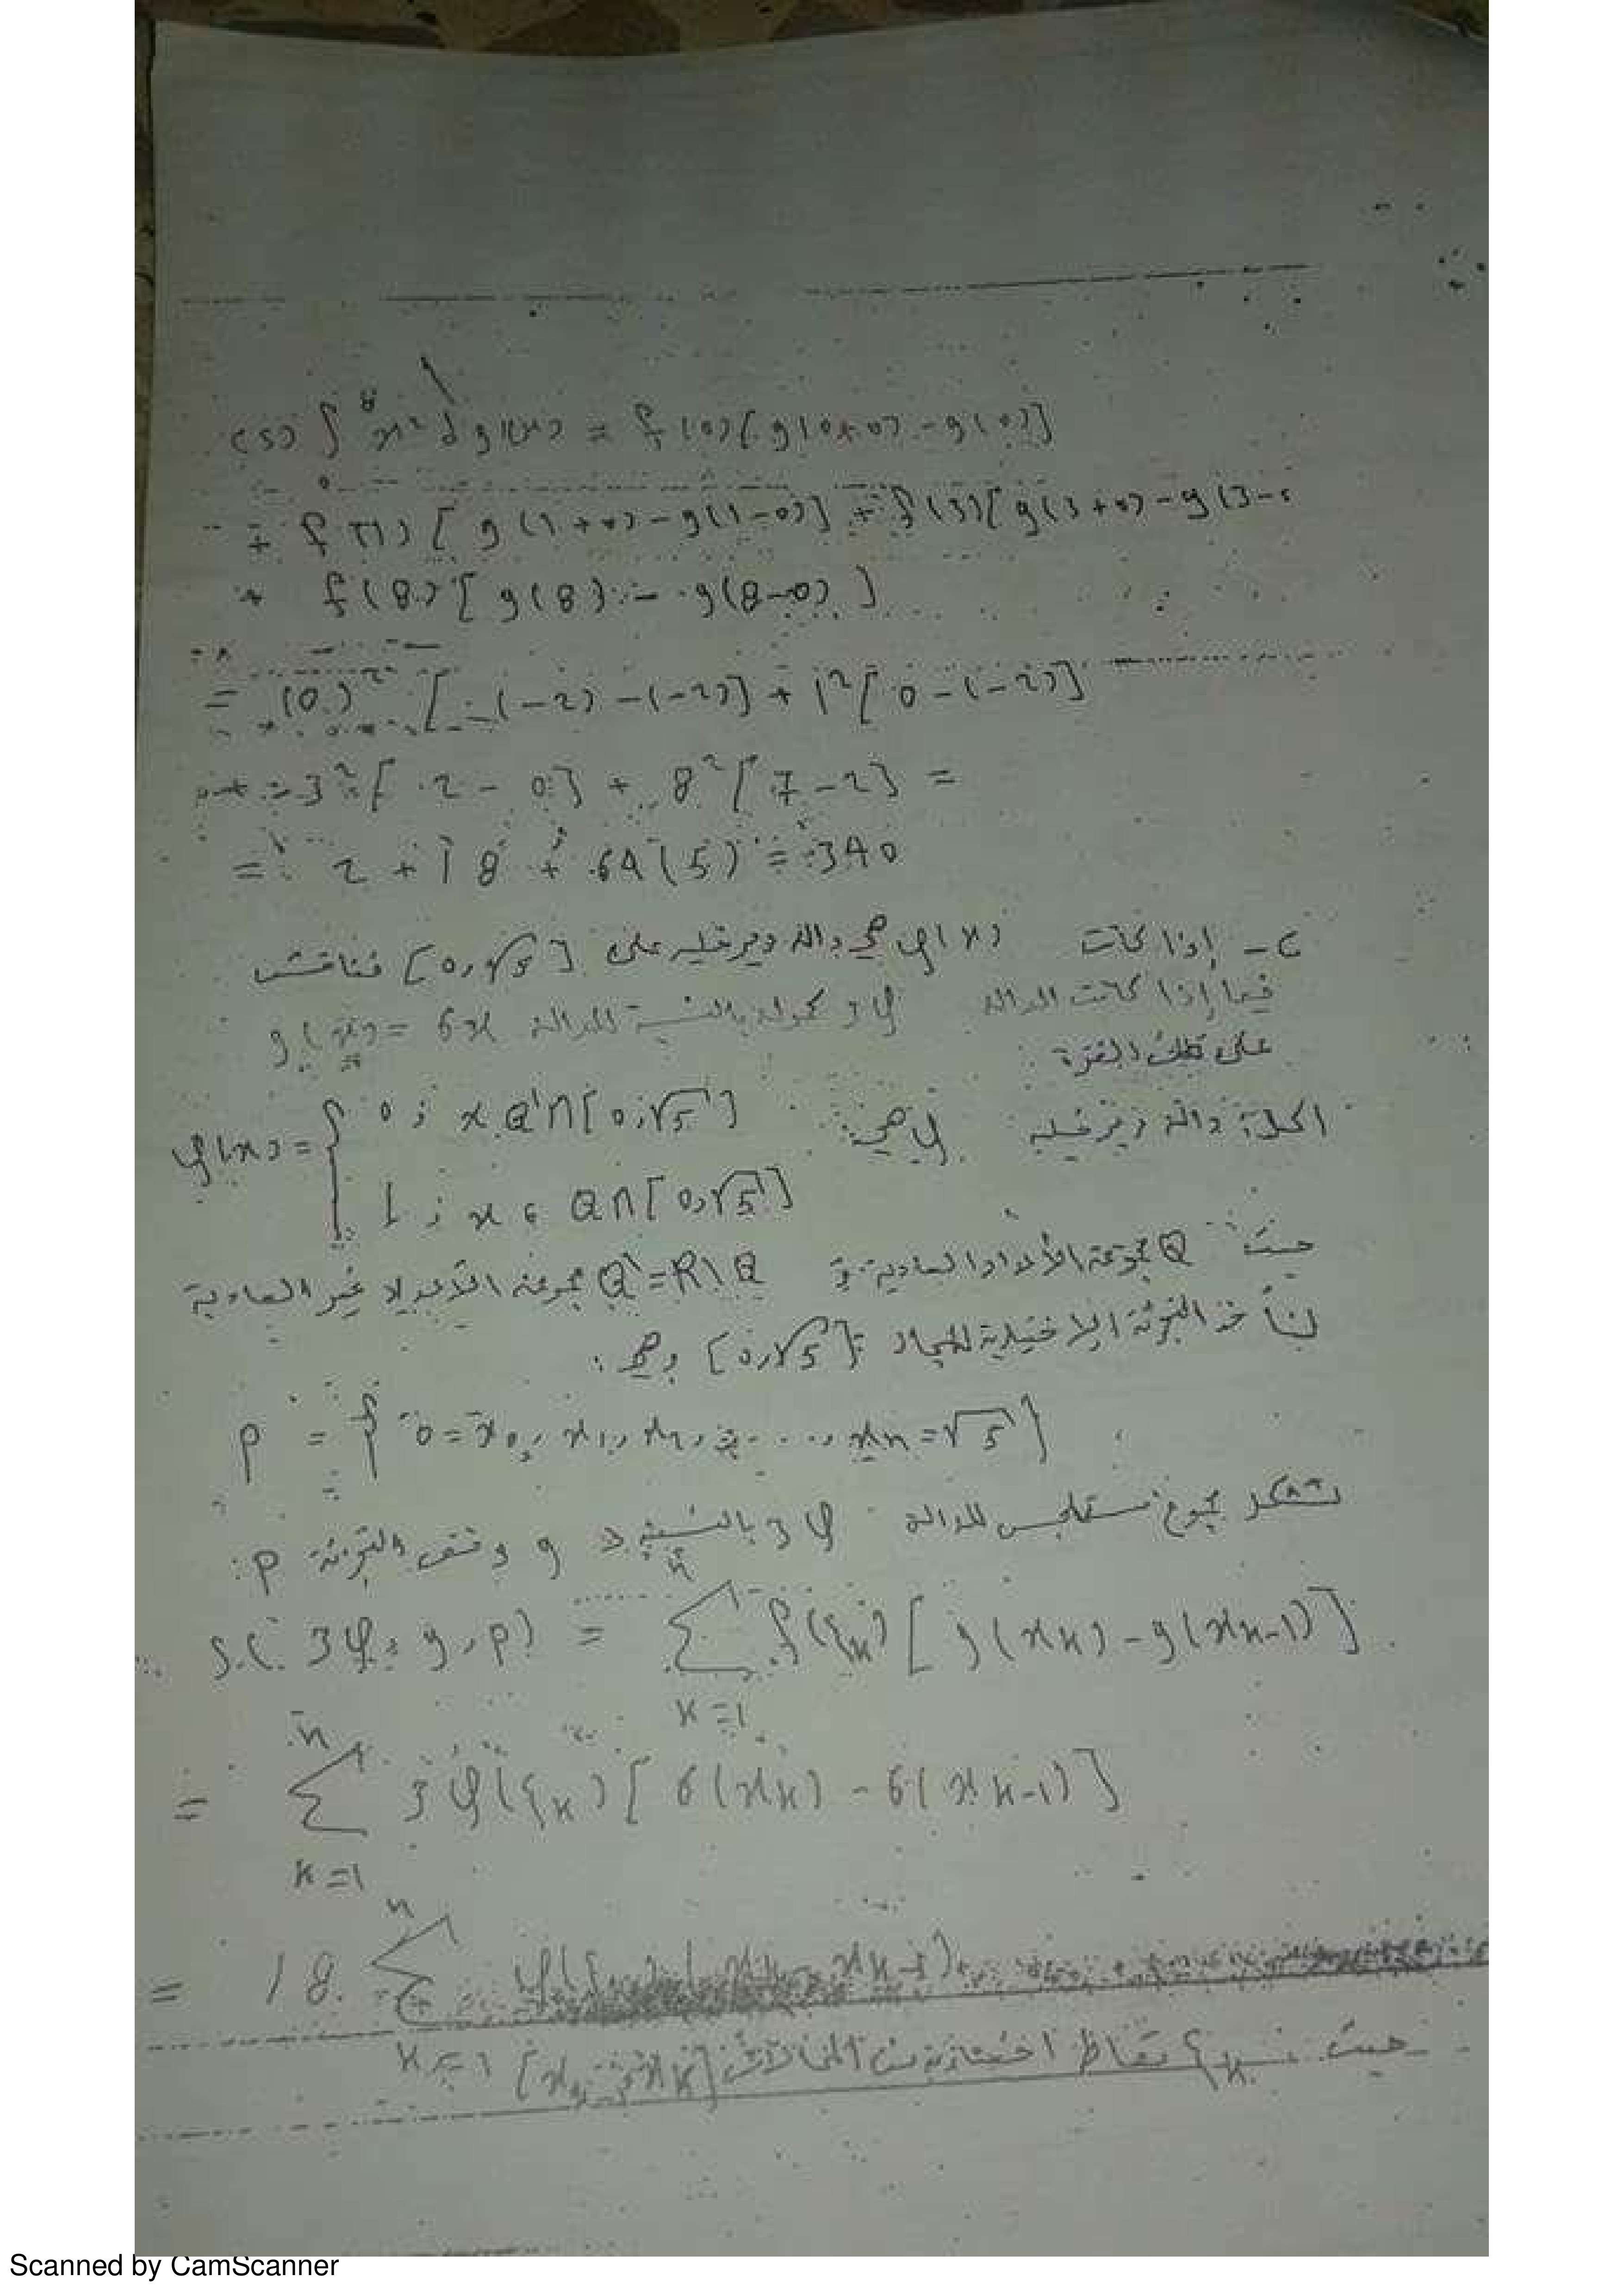 (S) ∫₀⁸ x² d g(x) = f(0)[g(0+0) - g(0)]
+ f(1) [ g(1+0) - g(1-0)] + f(3)[g(3+0) - g(3-0
+ f(8) [ g(8) - g(8-0) ]
= (0)² [ (-2) - (-2)] + 1² [ 0 - (-2)]
+ 3² [ 2 - 0 ] + 8² [ 7 - 2 ] =
= 2 + 18 + 64 (5) = 340
- إذا كانت φ(x) هي دالة ديرخليه على [0,√5] فناقش
فيما إذا كانت الدالة 3φ كمولة بالنسبة للدالة g(x) = 6x
على تلك الفترة
الحل: دالة ديرخليه φ هي:
φ(x) = { 0 ; x Q'∩[0,√5]
1 ; x ∈ Q∩[0,√5]
حيث Q مجموعة الأعداد العادية و Q' = R\Q مجموعة الأعداد غير العادية
لنأخذ التجزئة الاختيارية للمجال [0,√5] وهي:
P = { 0 = x₀, x₁, x₂, ..., xn = √5 }
نشكل مجموع ستيلجس للدالة 3φ بالنسبة لـ g وفق التجزئة P:
S( 3φ, g, p) = Σ_{k=1}^{n} f(ξk) [ g(xk) - g(xk-1)]
= Σ_{k=1}^{n} 3φ(ξk) [ 6(xk) - 6(xk-1)]
= 18 Σ_{k=1}^{n} φ(ξk) (xk - xk-1)
حيث ξk نقاط اختيارية من المجالات [xk-1, xk]